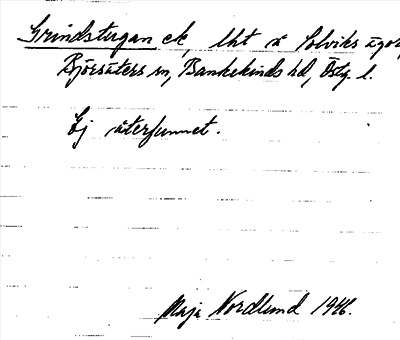 Grindstugan ck, lht å Solviks ägor,
Björsäters sn, Bankekinds hd, Östg. l.
Ej återfunnet.
Maja Nordlund 1946.